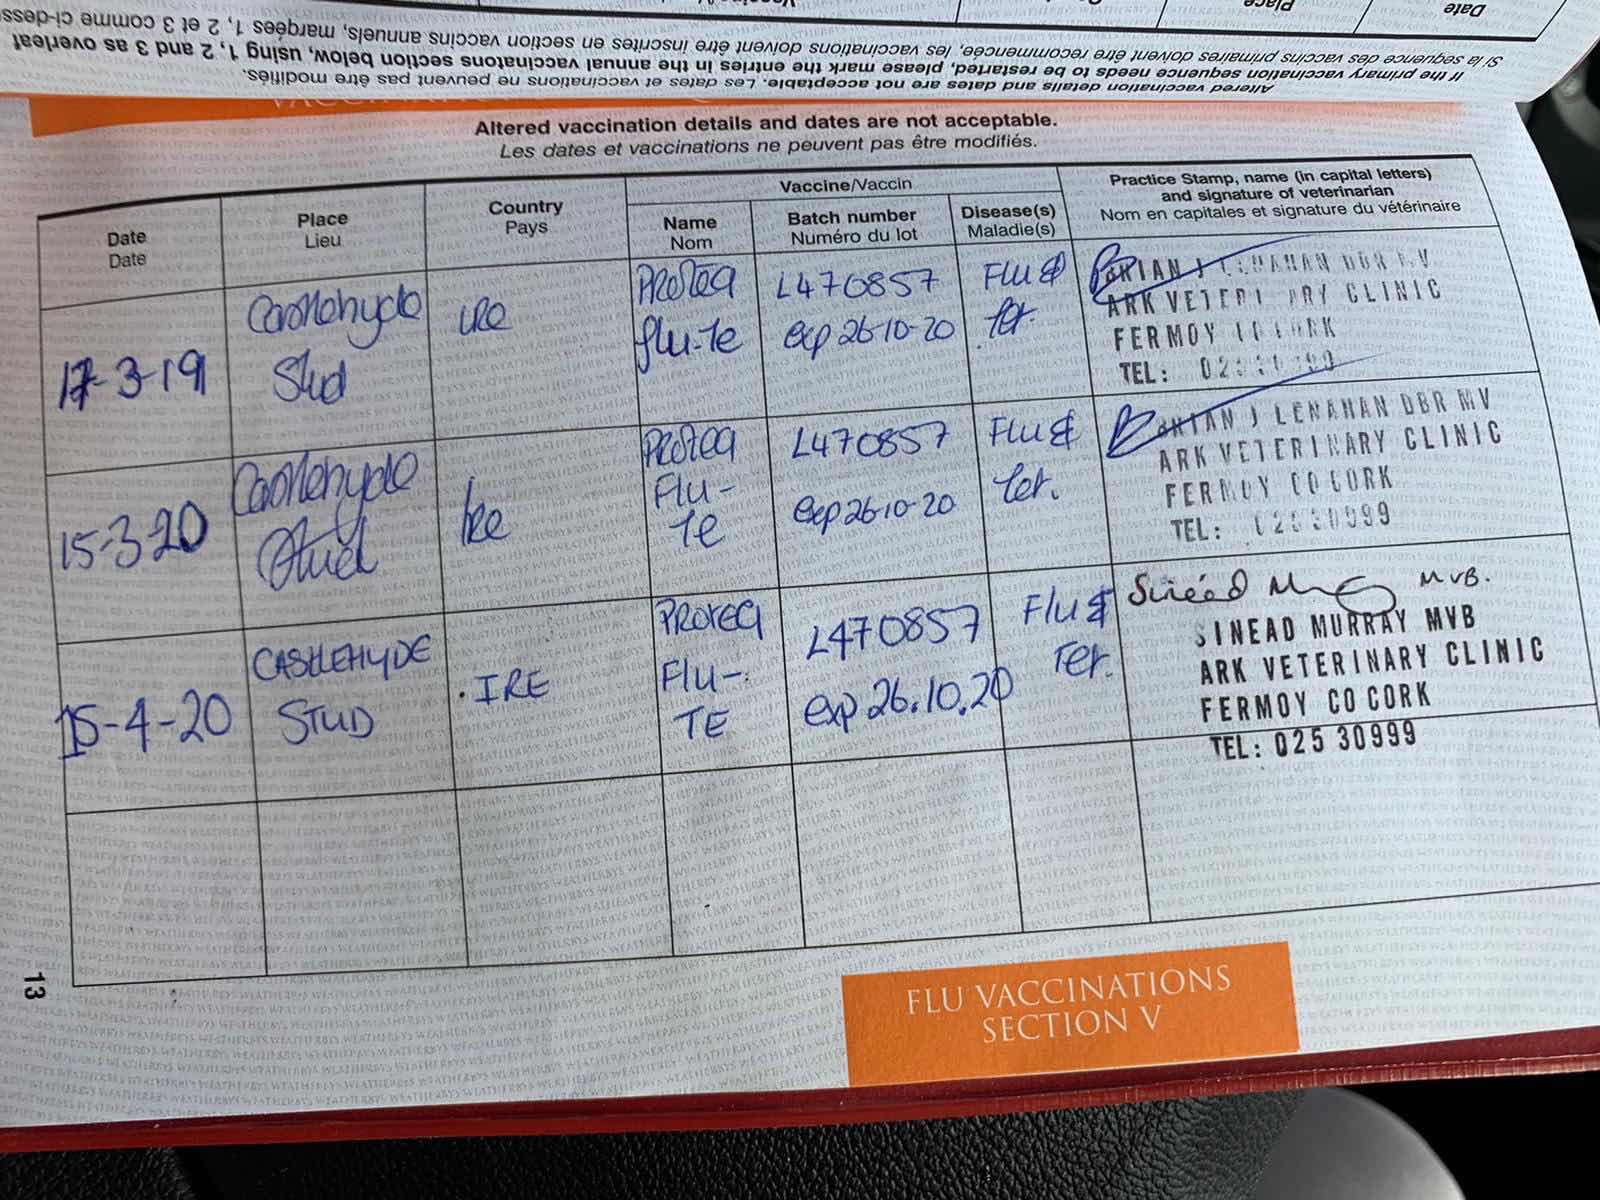 Date
Place
Si la séquence des vaccins primaires doivent être recommencée, les vaccinations doivent être inscrites en section vaccins annuels, marquées 1, 2 et 3 comme ci-dess
If the primary vaccination sequence needs to be restarted, please mark the entries in the annual vaccinatons section below, using 1, 2 and 3 as overleaf
Altered vaccination details and dates are not acceptable. Les dates et vaccinations ne peuvent pas être modifiés.
Altered vaccination details and dates are not acceptable.
Les dates et vaccinations ne peuvent pas être modifiés.
Date
Date
Place
Lieu
Country
Pays
Vaccine/Vaccin
Name
Nom
Batch number
Numéro du lot
Disease(s)
Maladie(s)
Practice Stamp, name (in capital letters)
and signature of veterinarian
Nom en capitales et signature du vétérinaire
17-3-19
Castlehyde
Stud
IRE
PROTEQ
flu-te
L470857
exp 26-10-20
Flu &
Tet.
BRIAN J LENAHAN DBR MV
ARK VETERINARY CLINIC
FERMOY CO CORK
TEL:
15-3-20
Castlehyde
Stud
Ire
PROTEQ
FLU-
Te
L470857
exp 26-10-20
Flu &
Tet.
BRIAN J LENAHAN DBR MV
ARK VETERINARY CLINIC
FERMOY CO CORK
TEL: 02530999
15-4-20
CASTLEHYDE
STUD
IRE
PROTEQ
FLU-
TE
L470857
exp 26.10.20
Flu &
Tet.
Sinéad M MVB.
SINEAD MURRAY MVB
ARK VETERINARY CLINIC
FERMOY CO CORK
TEL: 025 30999
13
FLU VACCINATIONS
SECTION V